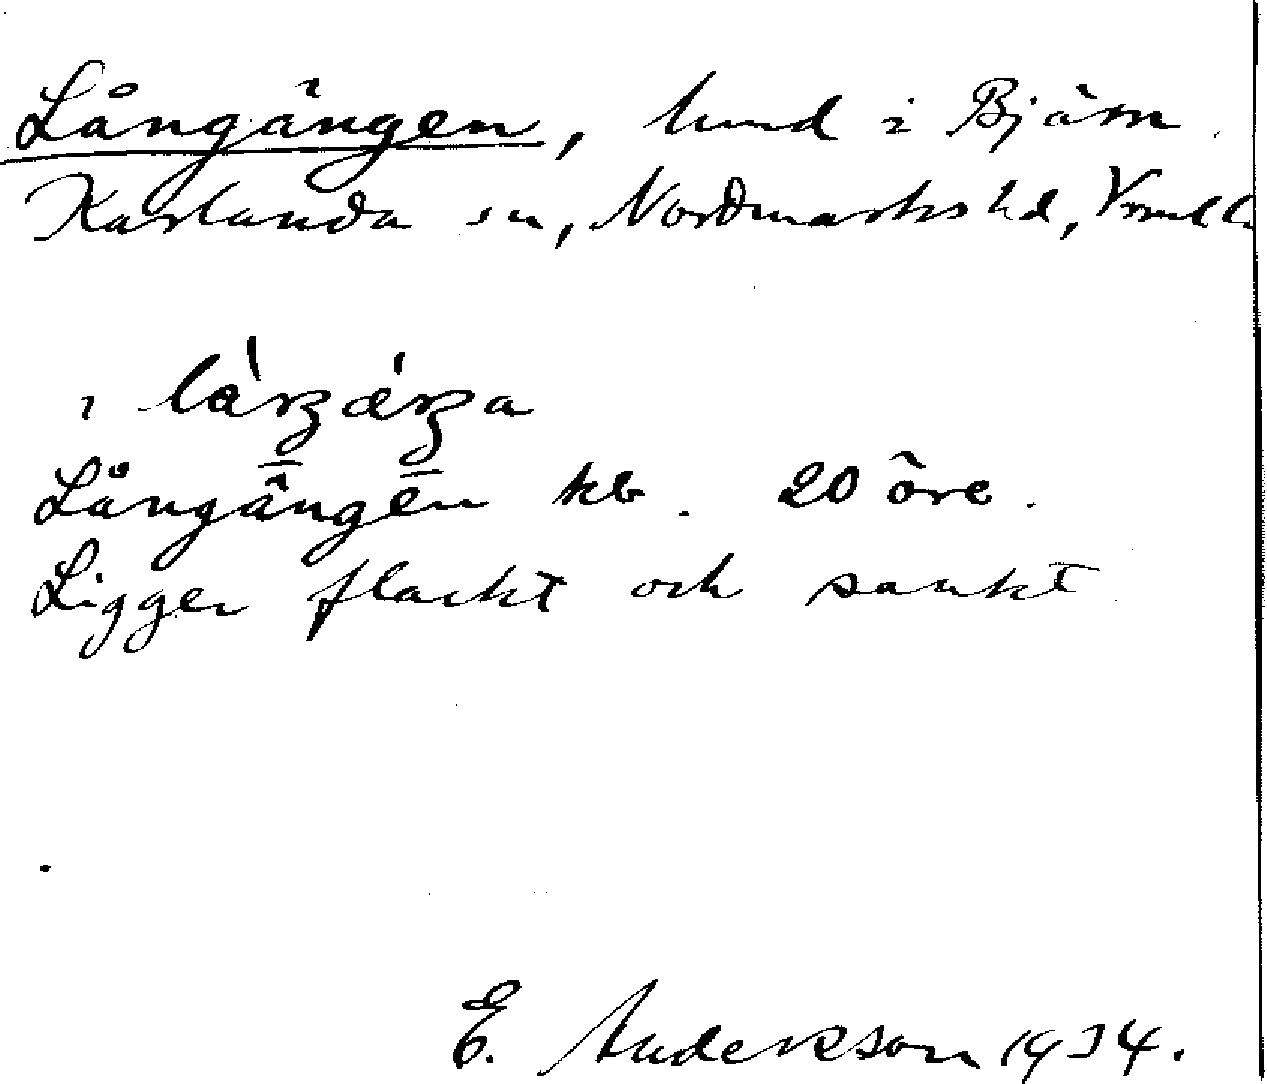 Långängen, lund i Bjärn.
Karlanda sn, Nordmarks hd, Vrml
i
Långängen kb. 20 öre.
Ligger flackt och sankt.
E. Andersson 1934.